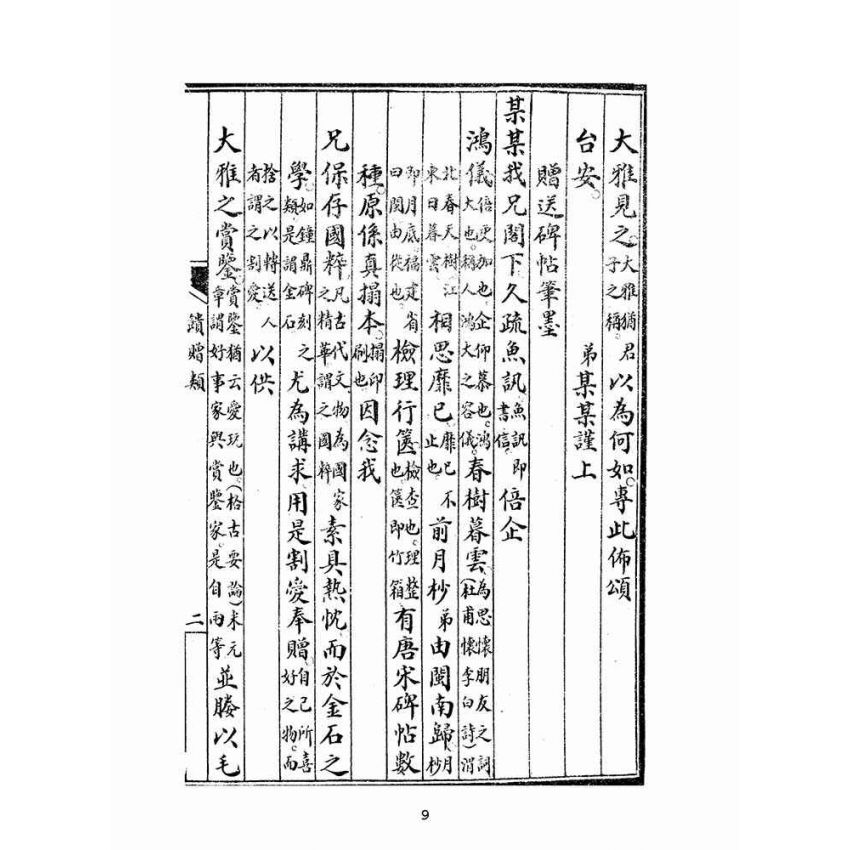 大雅見之。大雅猶君子之稱。以為何如。專此佈頌
台安。 弟某某謹上
贈送碑帖筆墨
某某我兄閣下久疏魚訊魚訊即書信。倍企
鴻儀倍更加也。企仰慕也。鴻大也。稱人鴻大之容儀。春樹暮雲為思懷朋友之詞（杜甫懷李白詩）渭
北春天樹江東日暮雲相思靡已靡已不止也前月杪弟由閩南歸月杪
即月底。福建省曰閩由從也檢理行篋檢查也。理整也篋即竹箱有唐宋碑帖數
種。原係真搨本。搨印刷也因念我
兄保存國粹凡古代文物為國家之精華謂之國粹素具熱忱而於金石之
學。如鐘鼎碑刻之類。是謂金石尤為講求用是割愛奉贈自己所喜好之物。而
捨之以轉送人者謂之割愛以供
大雅之賞鑒賞鑒猶云愛玩也。（格古要論）米元章謂好事家與賞鑒家。是自兩等並媵以毛
饋贈類 二
9